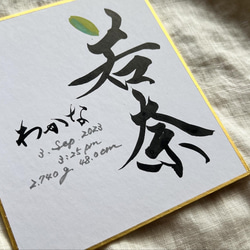 若奈
わかな
3. Sep. 2023
3:25 pm
2,740g 48.0cm